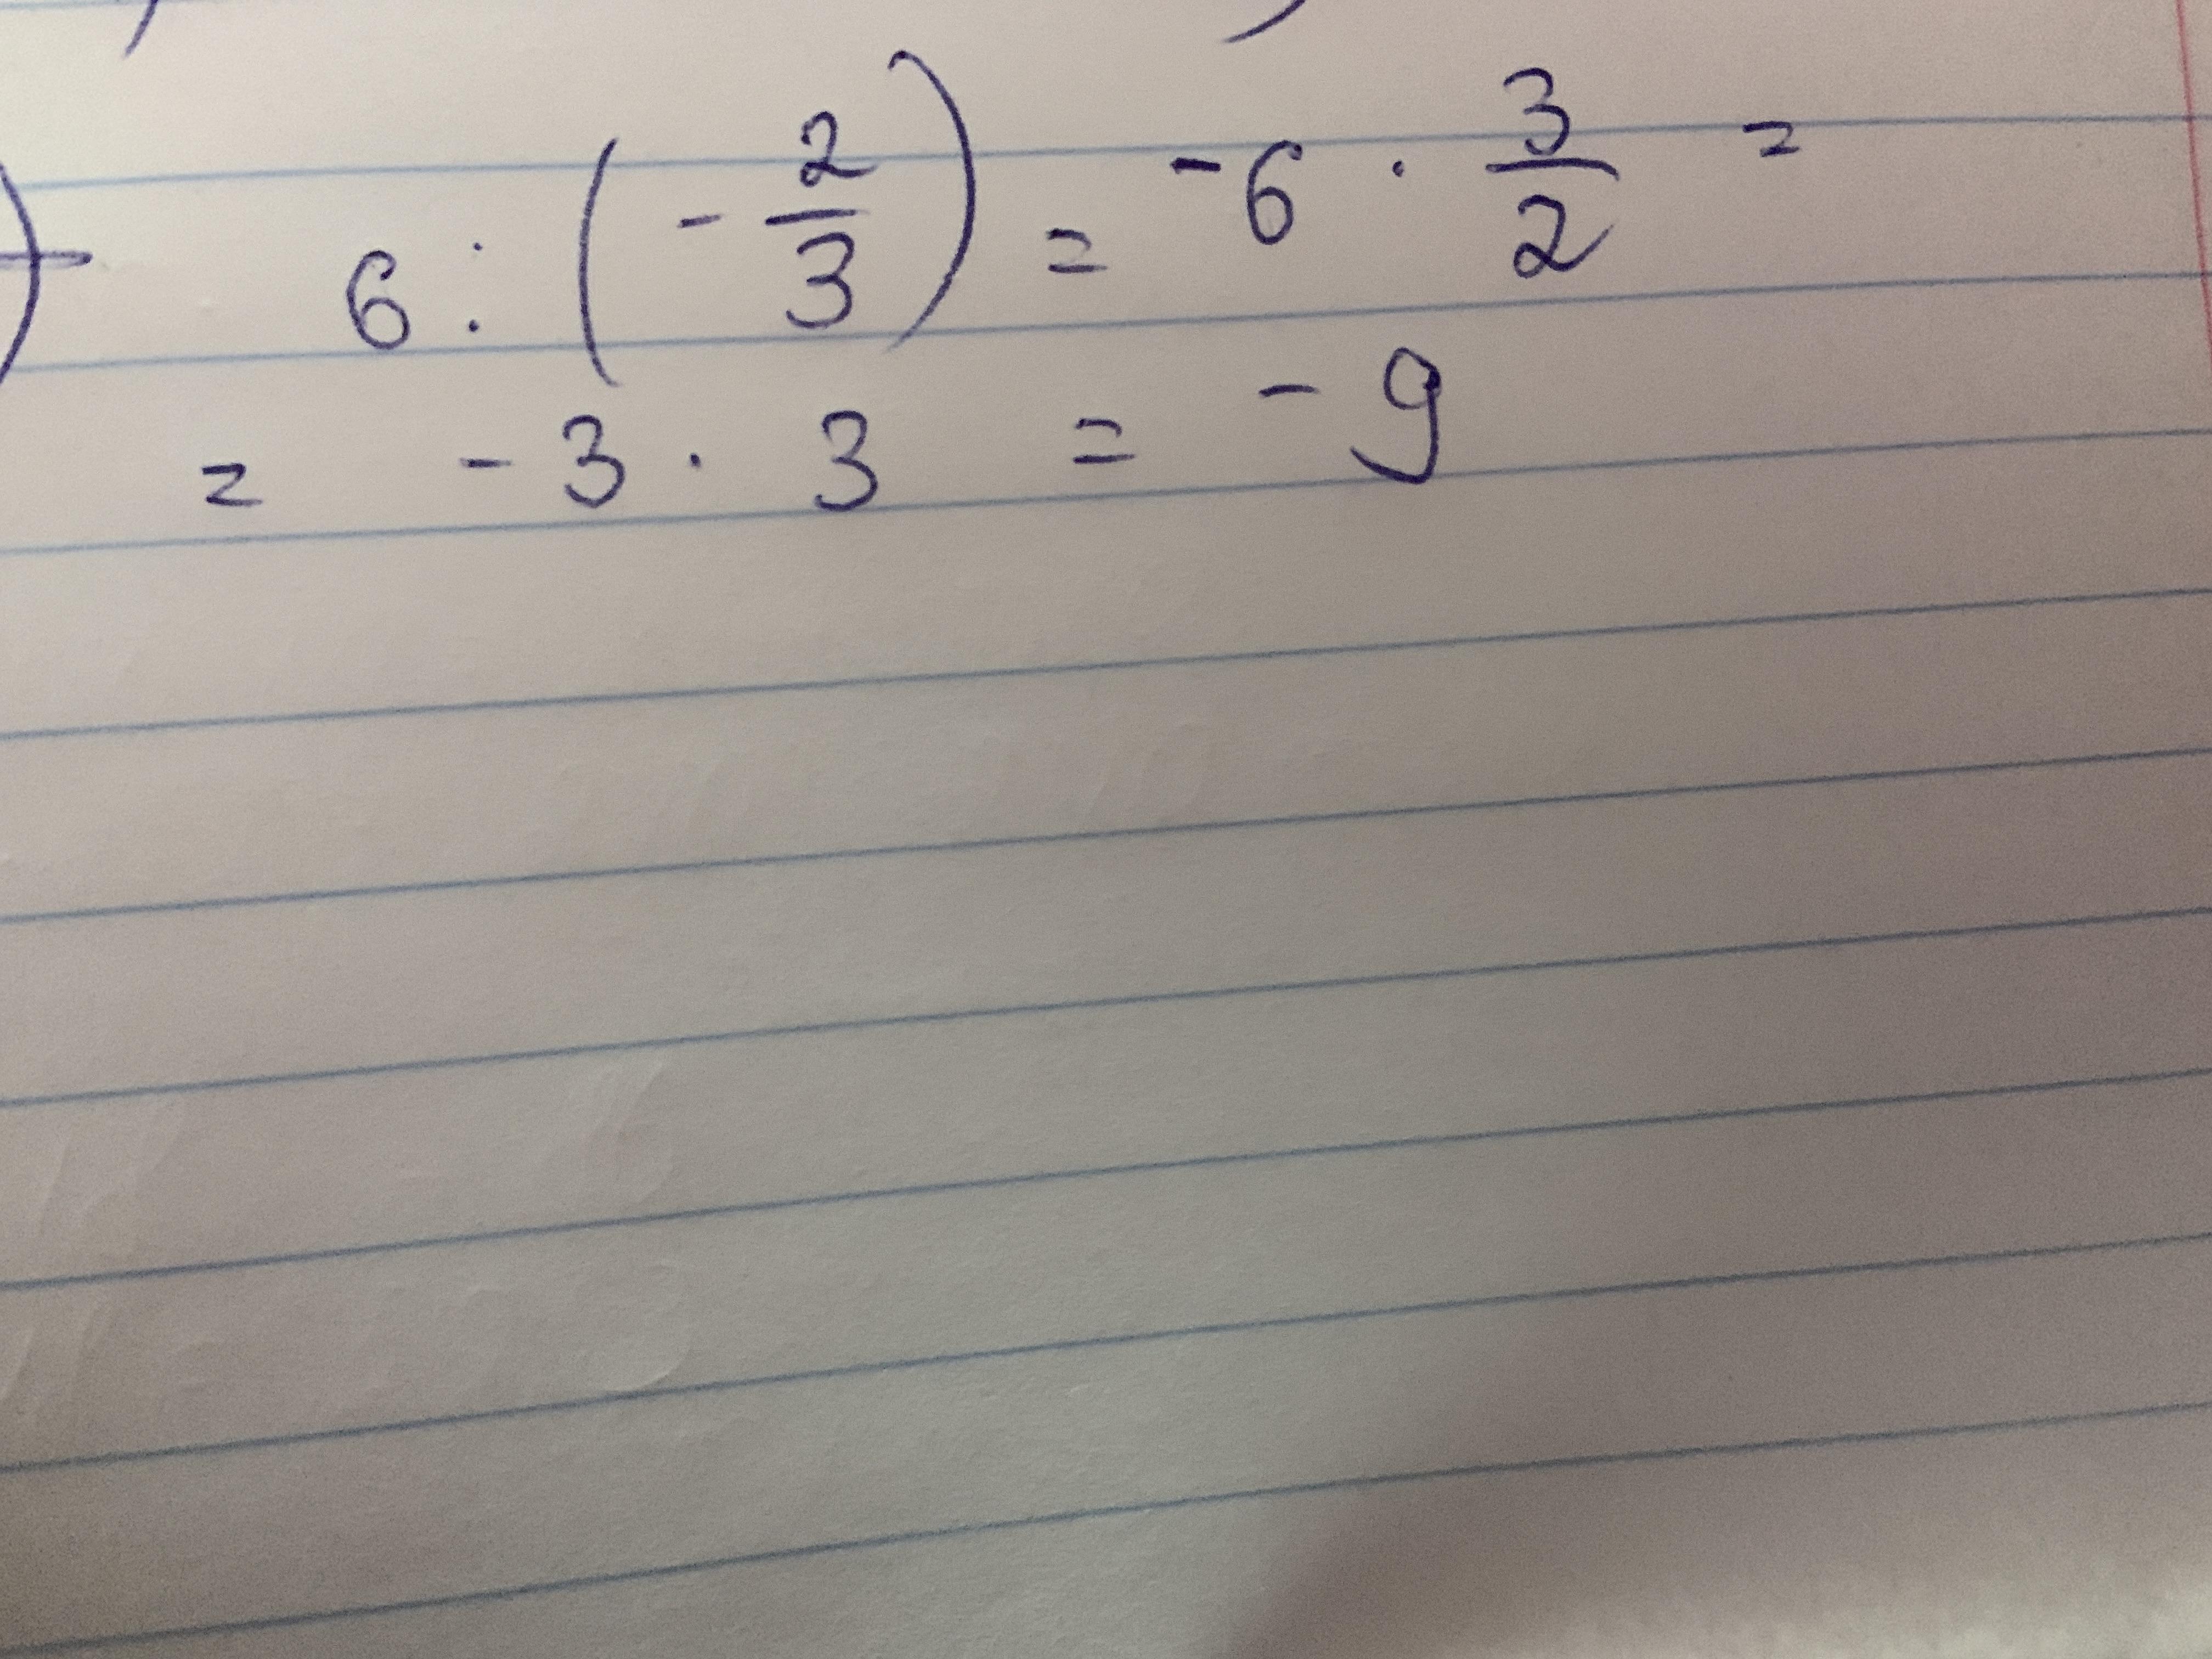 6 : (- 2/3) = -6 · 3/2 =
= -3 · 3 = -9